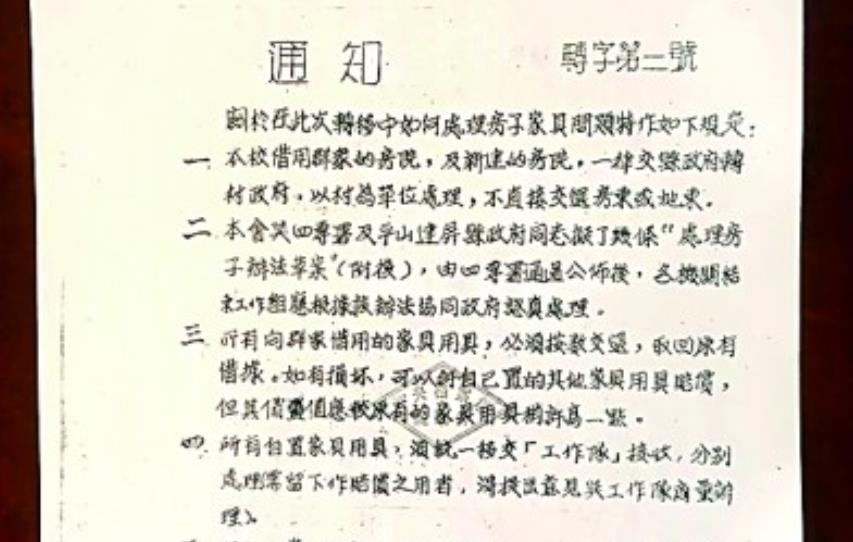 通知
轉字第二號
關於在此次轉移中如何處理房子家具問題特作如下規定：
一 本校借用群眾的房院，及新建的房院，一律交縣政府轉
村政府，以村為單位處理，不直接交還房東或地東。
二 本會與四專署及平山建屏縣政府同志擬了幾條“處理房
子辦法草案”(附後)，由四專署通過公佈後，各機關結
束工作組應根據該辦法協同政府認真處理。
三 所有向群眾借用的家具用具，必須按數交還，取回原有
借據。如有損坏，可以到自己置的其他家具用具賠償，
但其價值應較原有的家具用具稍高一點。
四 所有自置家具用具，須統一移交「工作隊」接收，分別
處理需留下作賠償之用者，須提出意見與工作隊商量辦
理)。